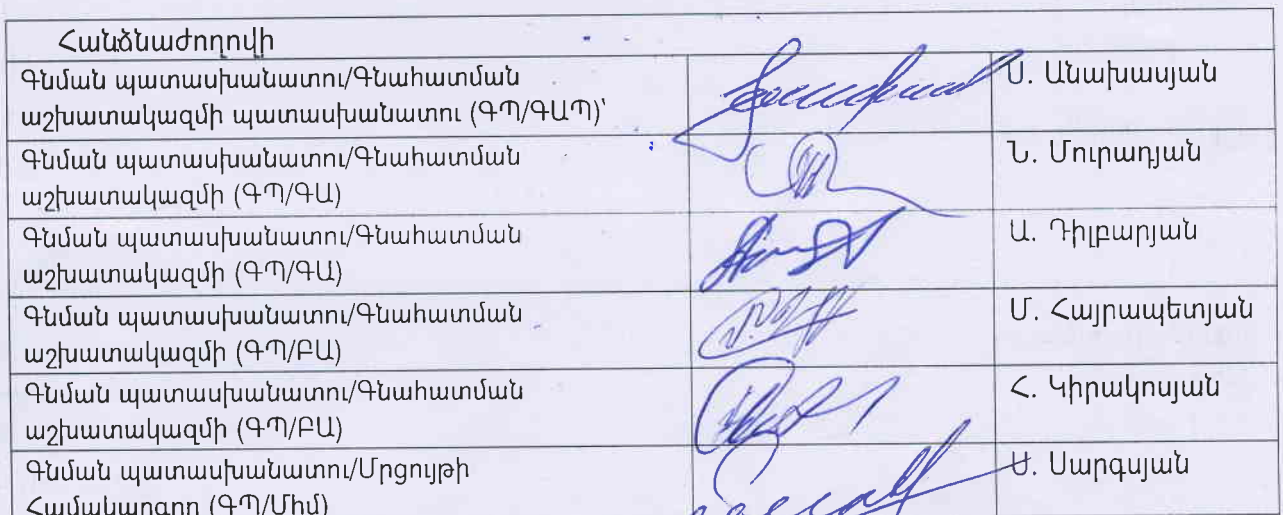 Հանձնաժողովի
Գնման պատասխանատու/Գնահատման
աշխատակազմի պատասխանատու (ԳՊ/ԳԱՊ)՝
Ս. Անախասյան
Գնման պատասխանատու/Գնահատման
աշխատակազմի (ԳՊ/ԳԱ)
Ն. Մուրադյան
Գնման պատասխանատու/Գնահատման
աշխատակազմի (ԳՊ/ԳԱ)
Ա. Դիլբարյան
Գնման պատասխանատու/Գնահատման
աշխատակազմի (ԳՊ/ԲԱ)
Մ. Հայրապետյան
Գնման պատասխանատու/Գնահատման
աշխատակազմի (ԳՊ/ԲԱ)
Հ. Կիրակոսյան
Գնման պատասխանատու/Մրցույթի
Համակարգող (ԳՊ/Միմ)
Ս. Սարգսյան